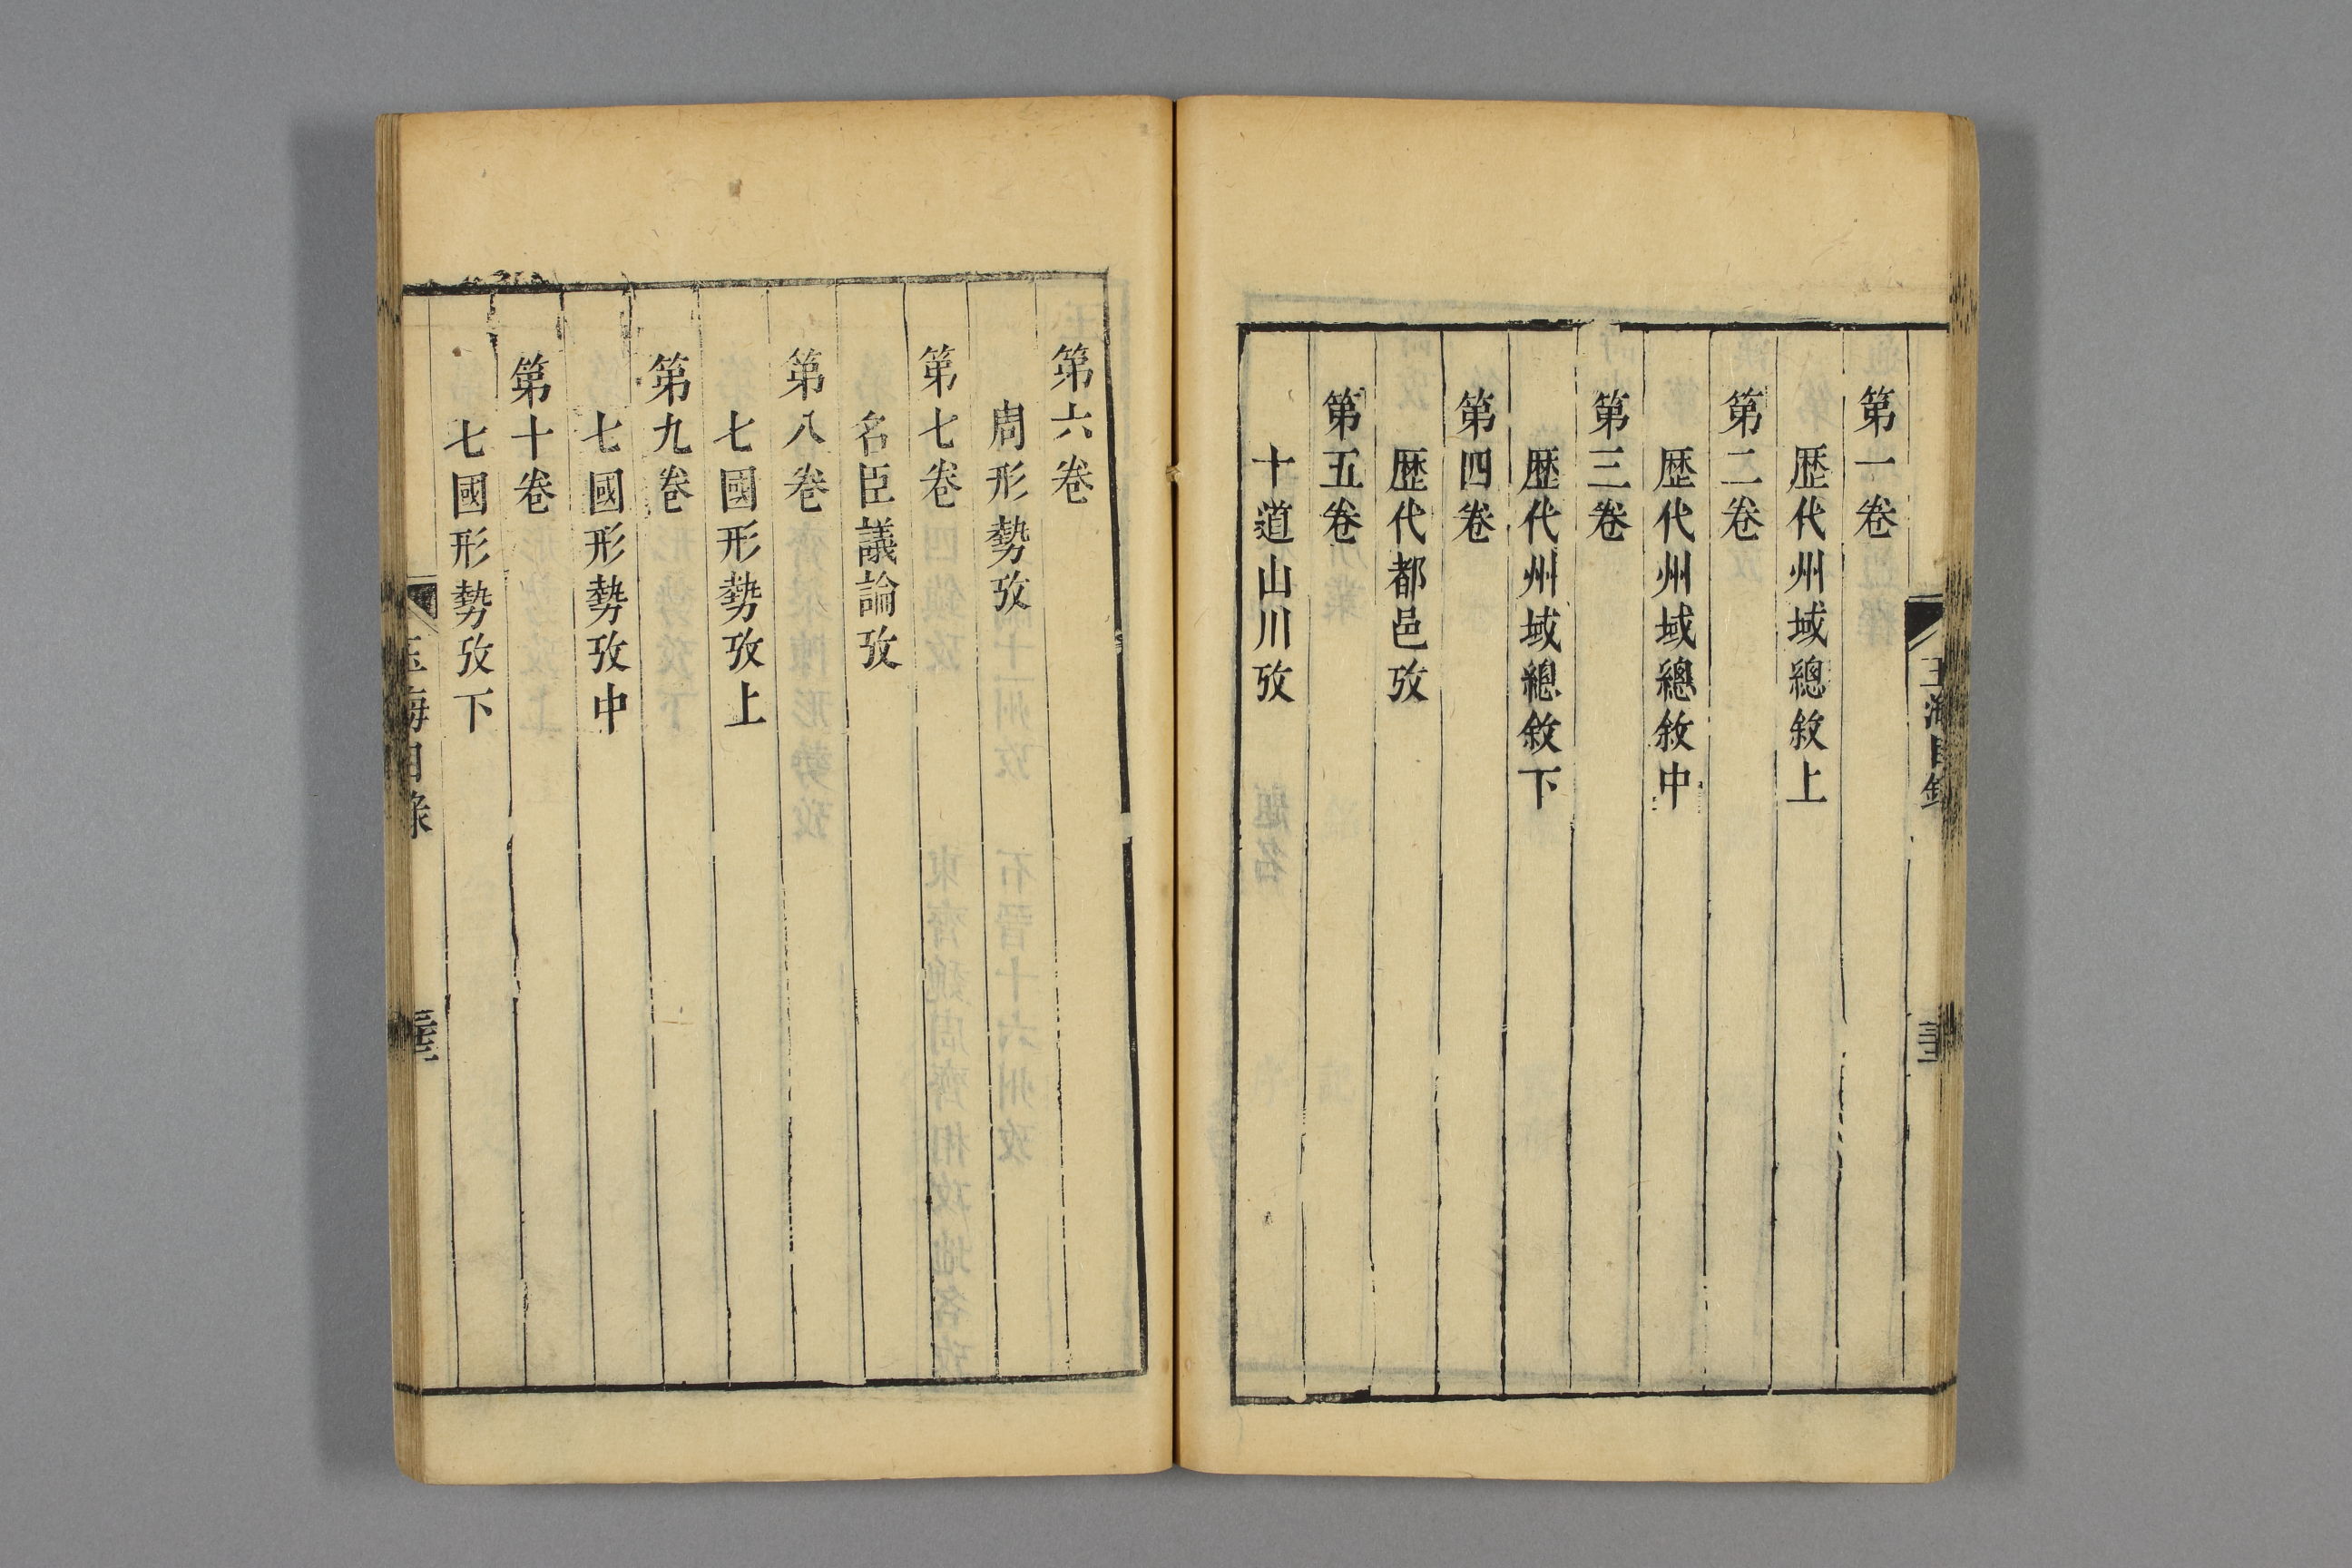 第一卷
歷代州域總敘上
第二卷
歷代州域總敘中
第三卷
歷代州域總敘下
第四卷
歷代都邑攷
第五卷
十道山川攷
第六卷
周形勢攷
第七卷
名臣議論攷
第八卷
七國形勢攷上
第九卷
七國形勢攷中
第十卷
七國形勢攷下
玉海目錄